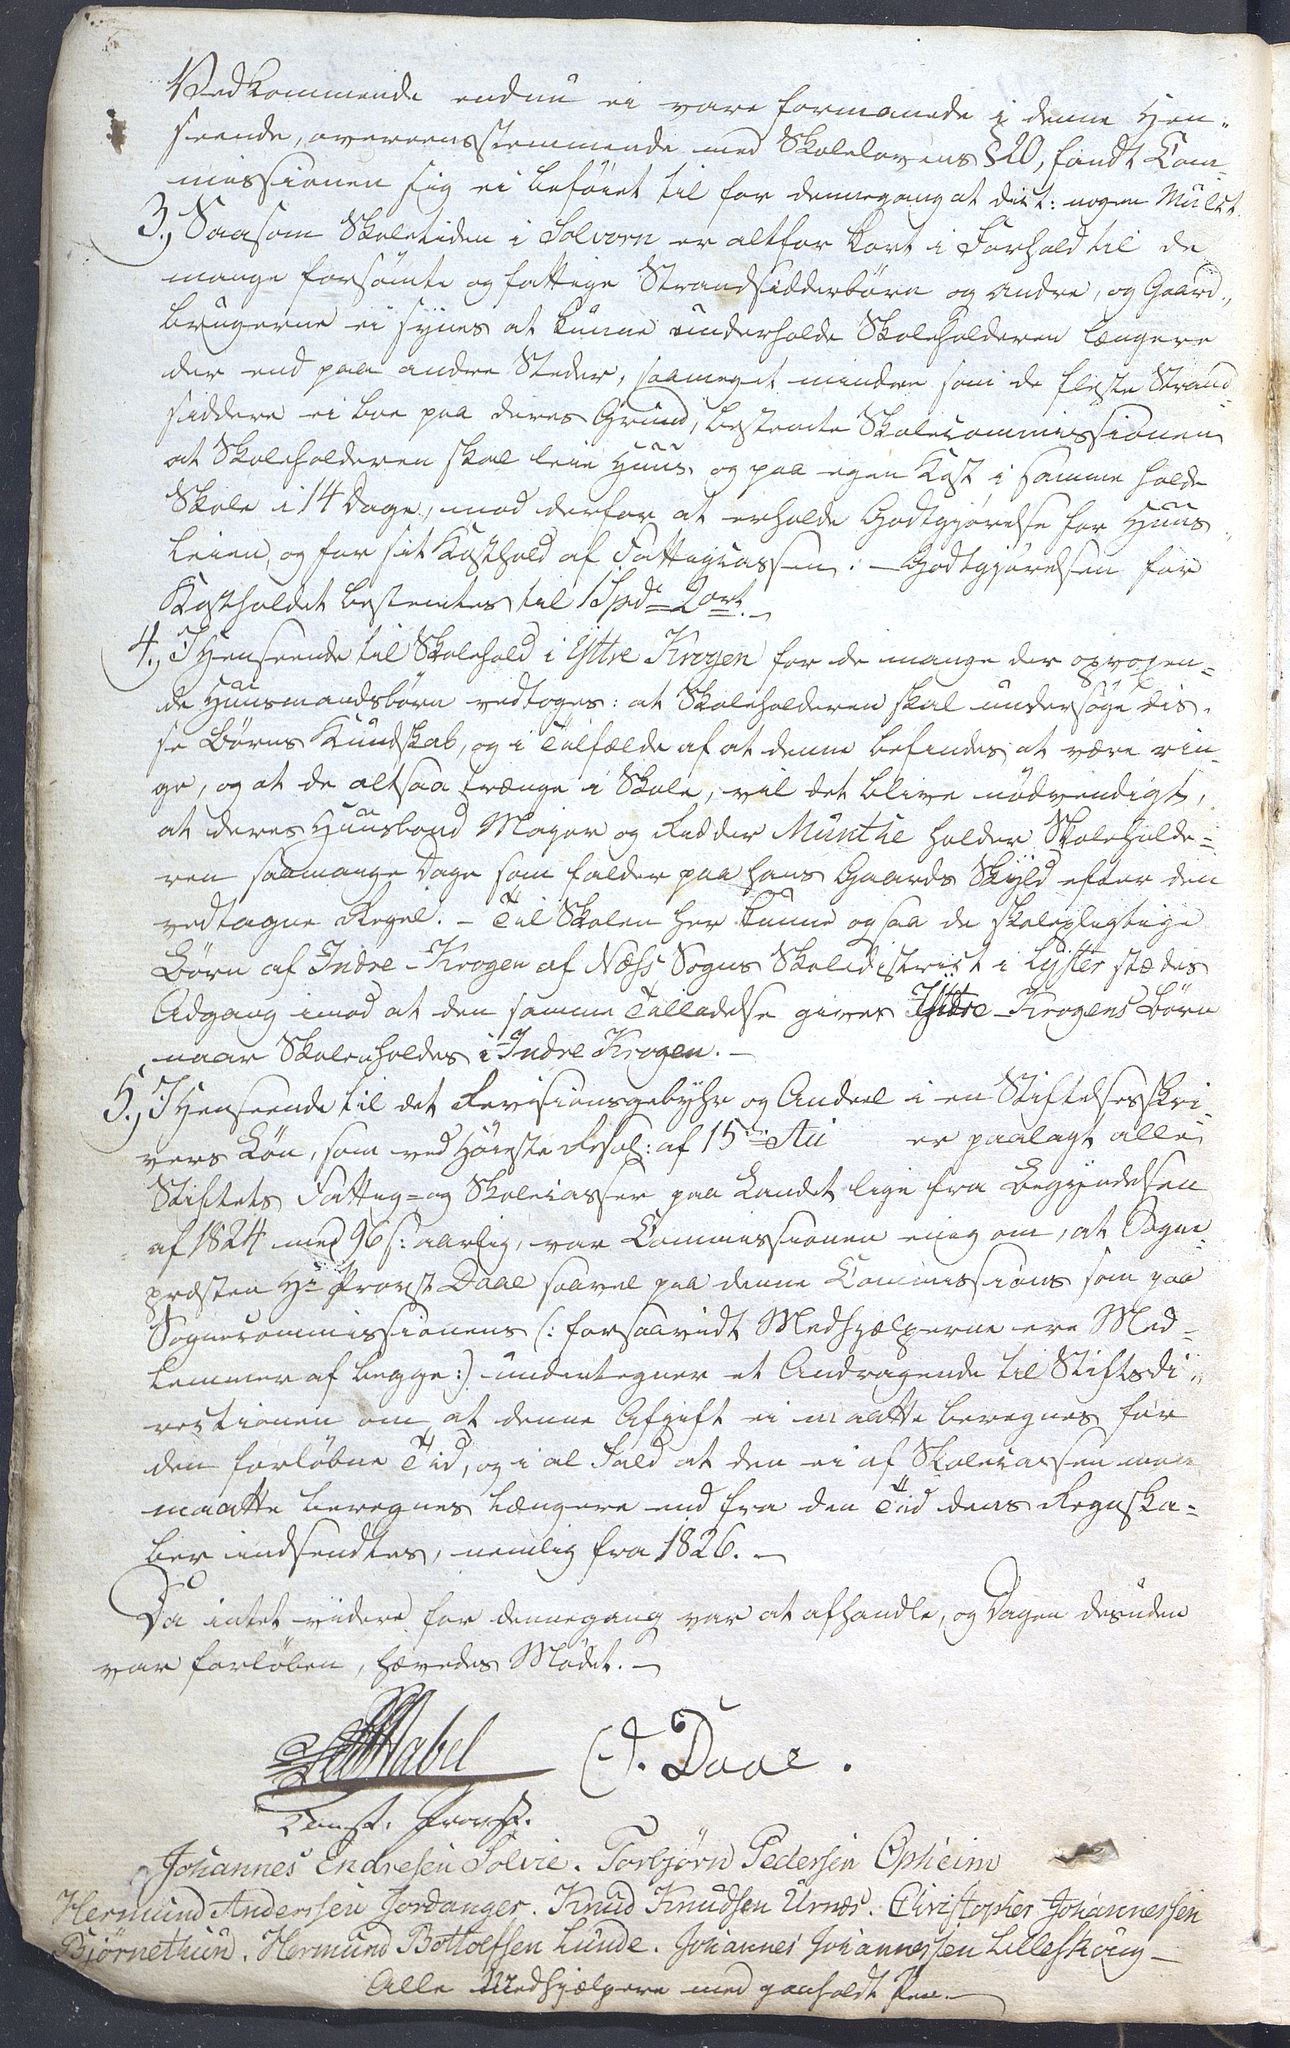 Vedkommende endnu ei vare formanede i denne Hen-
seende, overeensstemmende med Skolelovens § 20, fandt Com-
missionen sig ei beföiet til for dennegang at dict: nogen Mulct.
3., Saasom Skoletiden i Solvorn er altfor kort i Forhold til de
mange forsömte og fattige Strandsidderbörn og andre, og Gaard-
brugerne ei synes at kunne underholde Skoleholderen længere
der end paa andre Steder, saameget mindre som de fleste Strand-
siddere ei boe paa deres Grund, bestemte Skolecommissionen
at Skoleholderen skal leie Huus og paa egen Kost i samme holde
Skole i 14 Dage, mod derfor at erholde Godtgjörelse for Huus
leien, og for sit Kosthold af Fattigcassen. - Godtgjörelsen for
Kostholdet bestemtes til 1 Spd = 2 ort. -
4., I Henseende til Skolehold i Ÿttre Krogen for de mange der opvoxen=
de Huusmandsbörn vedtoges: at Skoleholderen skal undersöge dis-
se Börns Kundskab, og i Tilfælde af at denne befindes at være rin-
ge, og at de altsaa trænge i Skole, vil det blive nödvendigt,
at deres Huusbond Major og Ridder Munthe holder Skolehölde=
ren saamange Dage som falder paa hans Gaards Skyld efter den
vedtagne Regel. - Til Skolen her kunne ogsaa de skolepligtige
Börn af Indre-Krogen af Næss Sogns Skoledistrict i Lyster stædes
Adgang imod at den samme Tilladelse gives Ÿttre-Krogens Börn
naar Skolen holdes i Indre Krogen. -
5., I Henseende til det Revisionsgebyhr og Andeel i en Stiftelsesskri-
vers Lön, som ved Höieste Resol: af 15de er paalagt alle
Stiftets Fattig- og Skolecasser paa Landet lige fra Begyndelsen
af 1824 med 96 s: aarlig, var Commissionen enig om, at Sogne-
præsten Hr Provst Daae saavel paa denne Commissions som paa
Sognecommissionens (: forsaavidt Medhjælperne ere Med=
lemmer af begge:) undertegner et Andragende til Stiftsdi-
rectionen om at denne Afgift ei maatte beregnes for
den forlöbne Tid, og i al Fald at den ei af Skolecassen
maatte beregnes længere end fra den Tiid dens Regnska=
ber indsendtes, nemlig fra 1826. -
Da intet videre for dennegang var at afhandle, og Dagen desuden
var forlöben, hævedes Mödet. -
Nabel C. Daae.
Const. Provst.
Johannes Endresen Solvie. Torbjørn Pedersen Opheim
Hermund Anderssen Jordanger. Knud Knudsen Urnæs. Christopher Johannessen
Bjørnethun. Hermund Bottolfssen Lunde. Johannes Johannessen Lilleskoug -
Alle Medhjælpere med paaholdt Pen. -